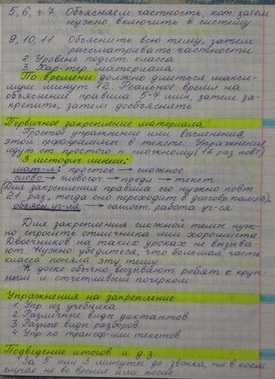 5, 6, ч. 7 Объясняем частность, кот. затем
нужно включить в систему
9, 10, 11 Объяснить всю тему, затем
рассматривать частности
2. Уровень подгот. класса
3. Хар-тер материала
По времени должно длиться макси-
мум минут 12. Реальное время на
объяснение правила 5-7 мин, затем за-
крепить, затем дообъяснять
Первичное закрепление материала
Простое упражнение или вычленения
этой орфограммы в тексте. Упражнения
идут от простого к сложному (12 раз повт)
3 методич. линии:
простое → сложное
слово → словосоч. → предл → текст
Для закрепления правила его нужно повт.
21 раз, тогда оно переходит в долговр. память
→ самост. работа уч-ся
Для закрепления сложной темы нуж-
но спросить отличника или хорошиста
Двоечников на таких уроках не вызыва-
ют. Нужно убедится, что большая часть
класса поняла эту тему.
К доске обычно вызывают ребят с круп-
ным и отчетливым почерком.
Упражнения на закрепление
1. Упр из учебника
2. Различные виды диктантов
3. Разные виды разборов
4. Упр по трансф-ии текстов
Подведение итогов и д.з.
За 5 или 3 минуты до звонка, ни в коем
случае не во время или после.